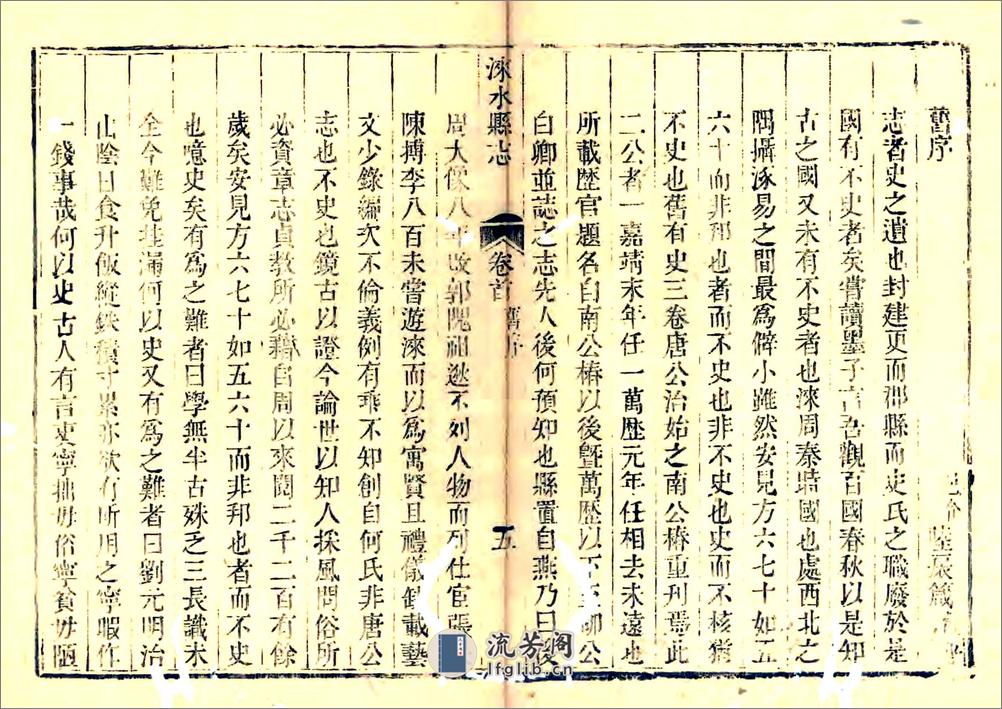 舊序
陸宸箴
志者史之遺也封建更而郡縣而史氏之職廢於是
國有不史者矣嘗讀墨子言吾觀百國春秋以是知
古之國又未有不史者也淶周秦時國也處西北之
隅攝涿易之間最爲僻小雖然安見方六七十如五
六十而非邦也者而不史也非不史也史而不核猶
不史也舊有史三卷唐公治始之南公椿重刋焉此
二公者一嘉靖末年任一萬歷元年任相去未遠也
所載歷官題名自南公椿以後曁萬歷以下至柳公
白卿並誌之志先人後何預知也縣置自燕乃曰
淶水縣志
卷首
舊序
五
周大像八年改郭隗祖逖不列人物而列仕宦張
陳搏李八百未嘗遊淶而以爲寓賢且禮儀缺載藝
文少錄編次不倫義例有乖不知創自何氏非唐公
志也不史也鏡古以證今論世以知人採風問俗所
必資章志貞教所必藉自周以來閱二千二百有餘
歲矣安見方六七十如五六十而非邦也者而不史
也噫史矣有爲之難者曰學無半古姝乏三長識未
全今難免挂漏何以史又有爲之難者曰劉元明治
山陰日食升飯縱銖積寸累亦欲有所用之寧暇作
一錢事哉何以史古人有言吏寧拙毋俗寧貧毋陋
流芳阁
lfglib.cn